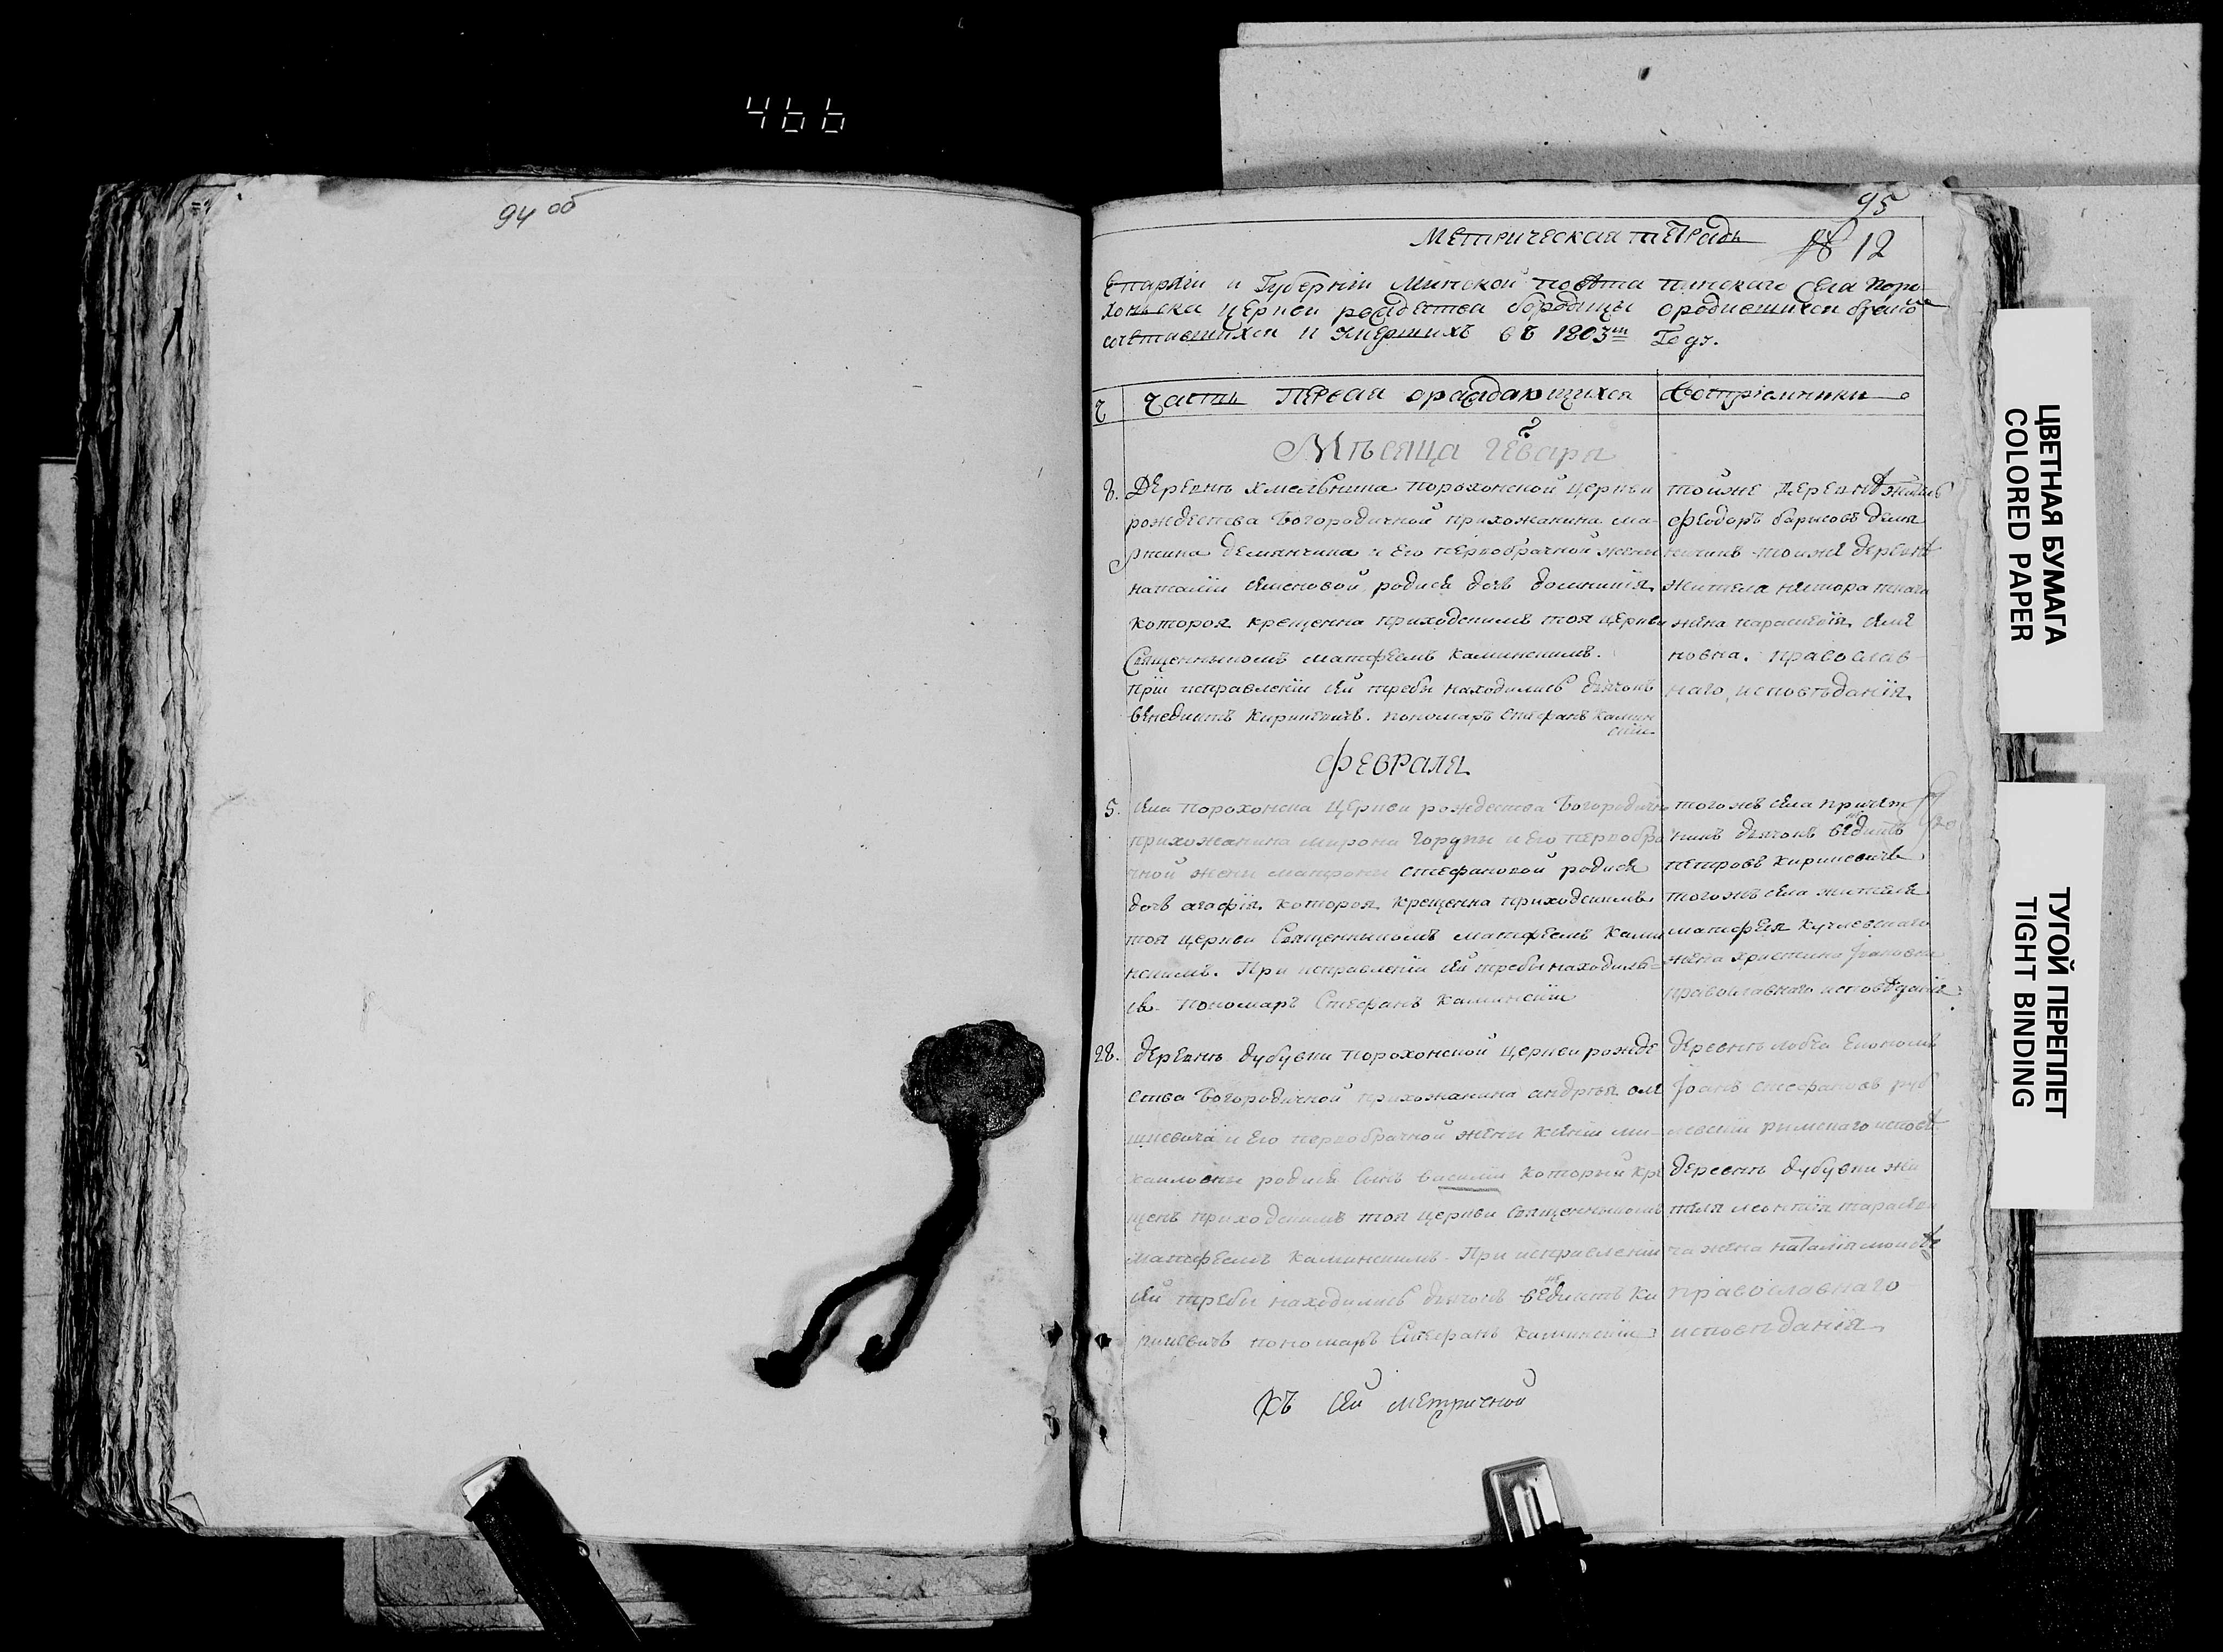 466
94 об
95
Метрическая тетрадь
12
Епархіи и Губерніи Минской повѣта пинскаго села Поро
хонска церкви рождества бгородицы ородившихся бракомъ
сочетавшихся и умершихъ въ 1803м Году.
Ч Часть Первая ораждающихся
Воспріемники
Мѣсяца Генваря
8. Деревнѣ хмельника порохонской церкви
рождества Богородичной прихожанина ма
ртина демянчика и его первобрачной жени
наталіи семеновой родися дочь домникія
которая крещенна приходскимъ тоя церкви
Священникомъ матфеемъ каминскимъ.
при исправленіи сей требы находились дьячокъ
венедиктъ Кириневичъ. пономаръ стефанъ Камин
скій
тойже деревнѣ житель
феодоръ барисовъ демя
нчикъ тоиже деревнѣ
жителя
жена параскевія семе
новна. православ
наго исповѣданія
Февраля
5. села порохонска церкви рождества Богородичной
прихожанина мирона горупы и его первобра
чной жени матроны стефановой родися
дочь агафія которая крещенна приходскимъ
тоя церкви Священникомъ матфеемъ Ками
нскимъ. При исправленіи сей требы находилъ
ся пономаръ Стефанъ Каминскій
тогожъ села причет
никъ дьячокъ венедиктъ
петровъ кириневичъ
тогожъ села жителя
матфея Кучевскаго
жена христина Іванов
православнаго исповѣданія
28. деревнѣ дубувки порохонской церкви рожде
ства Богородичной прихожанина андрѣя оле
шкевича и его первобрачной жены Ксеніи ми
хаиловны родися синъ василій который кре
щенъ приходскимъ тоя церкви священникомъ
матфеемъ Каминскимъ. При исправленіи
сей требы находились дьячокъ венедиктъ Ки
риневичъ пономаръ Стефанъ Каминскій
деревнѣ лобча економъ
Іоанъ стефановъ
римскаго исповѣ
деревнѣ дубувки жи
теля леонтія тарасеви
ча жена наталія
православнаго
исповѣданія
Къ сей метричной
ЦВЕТНАЯ БУМАГА
COLORED PAPER
ТУГОЙ ПЕРЕПЛЕТ
TIGHT BINDING